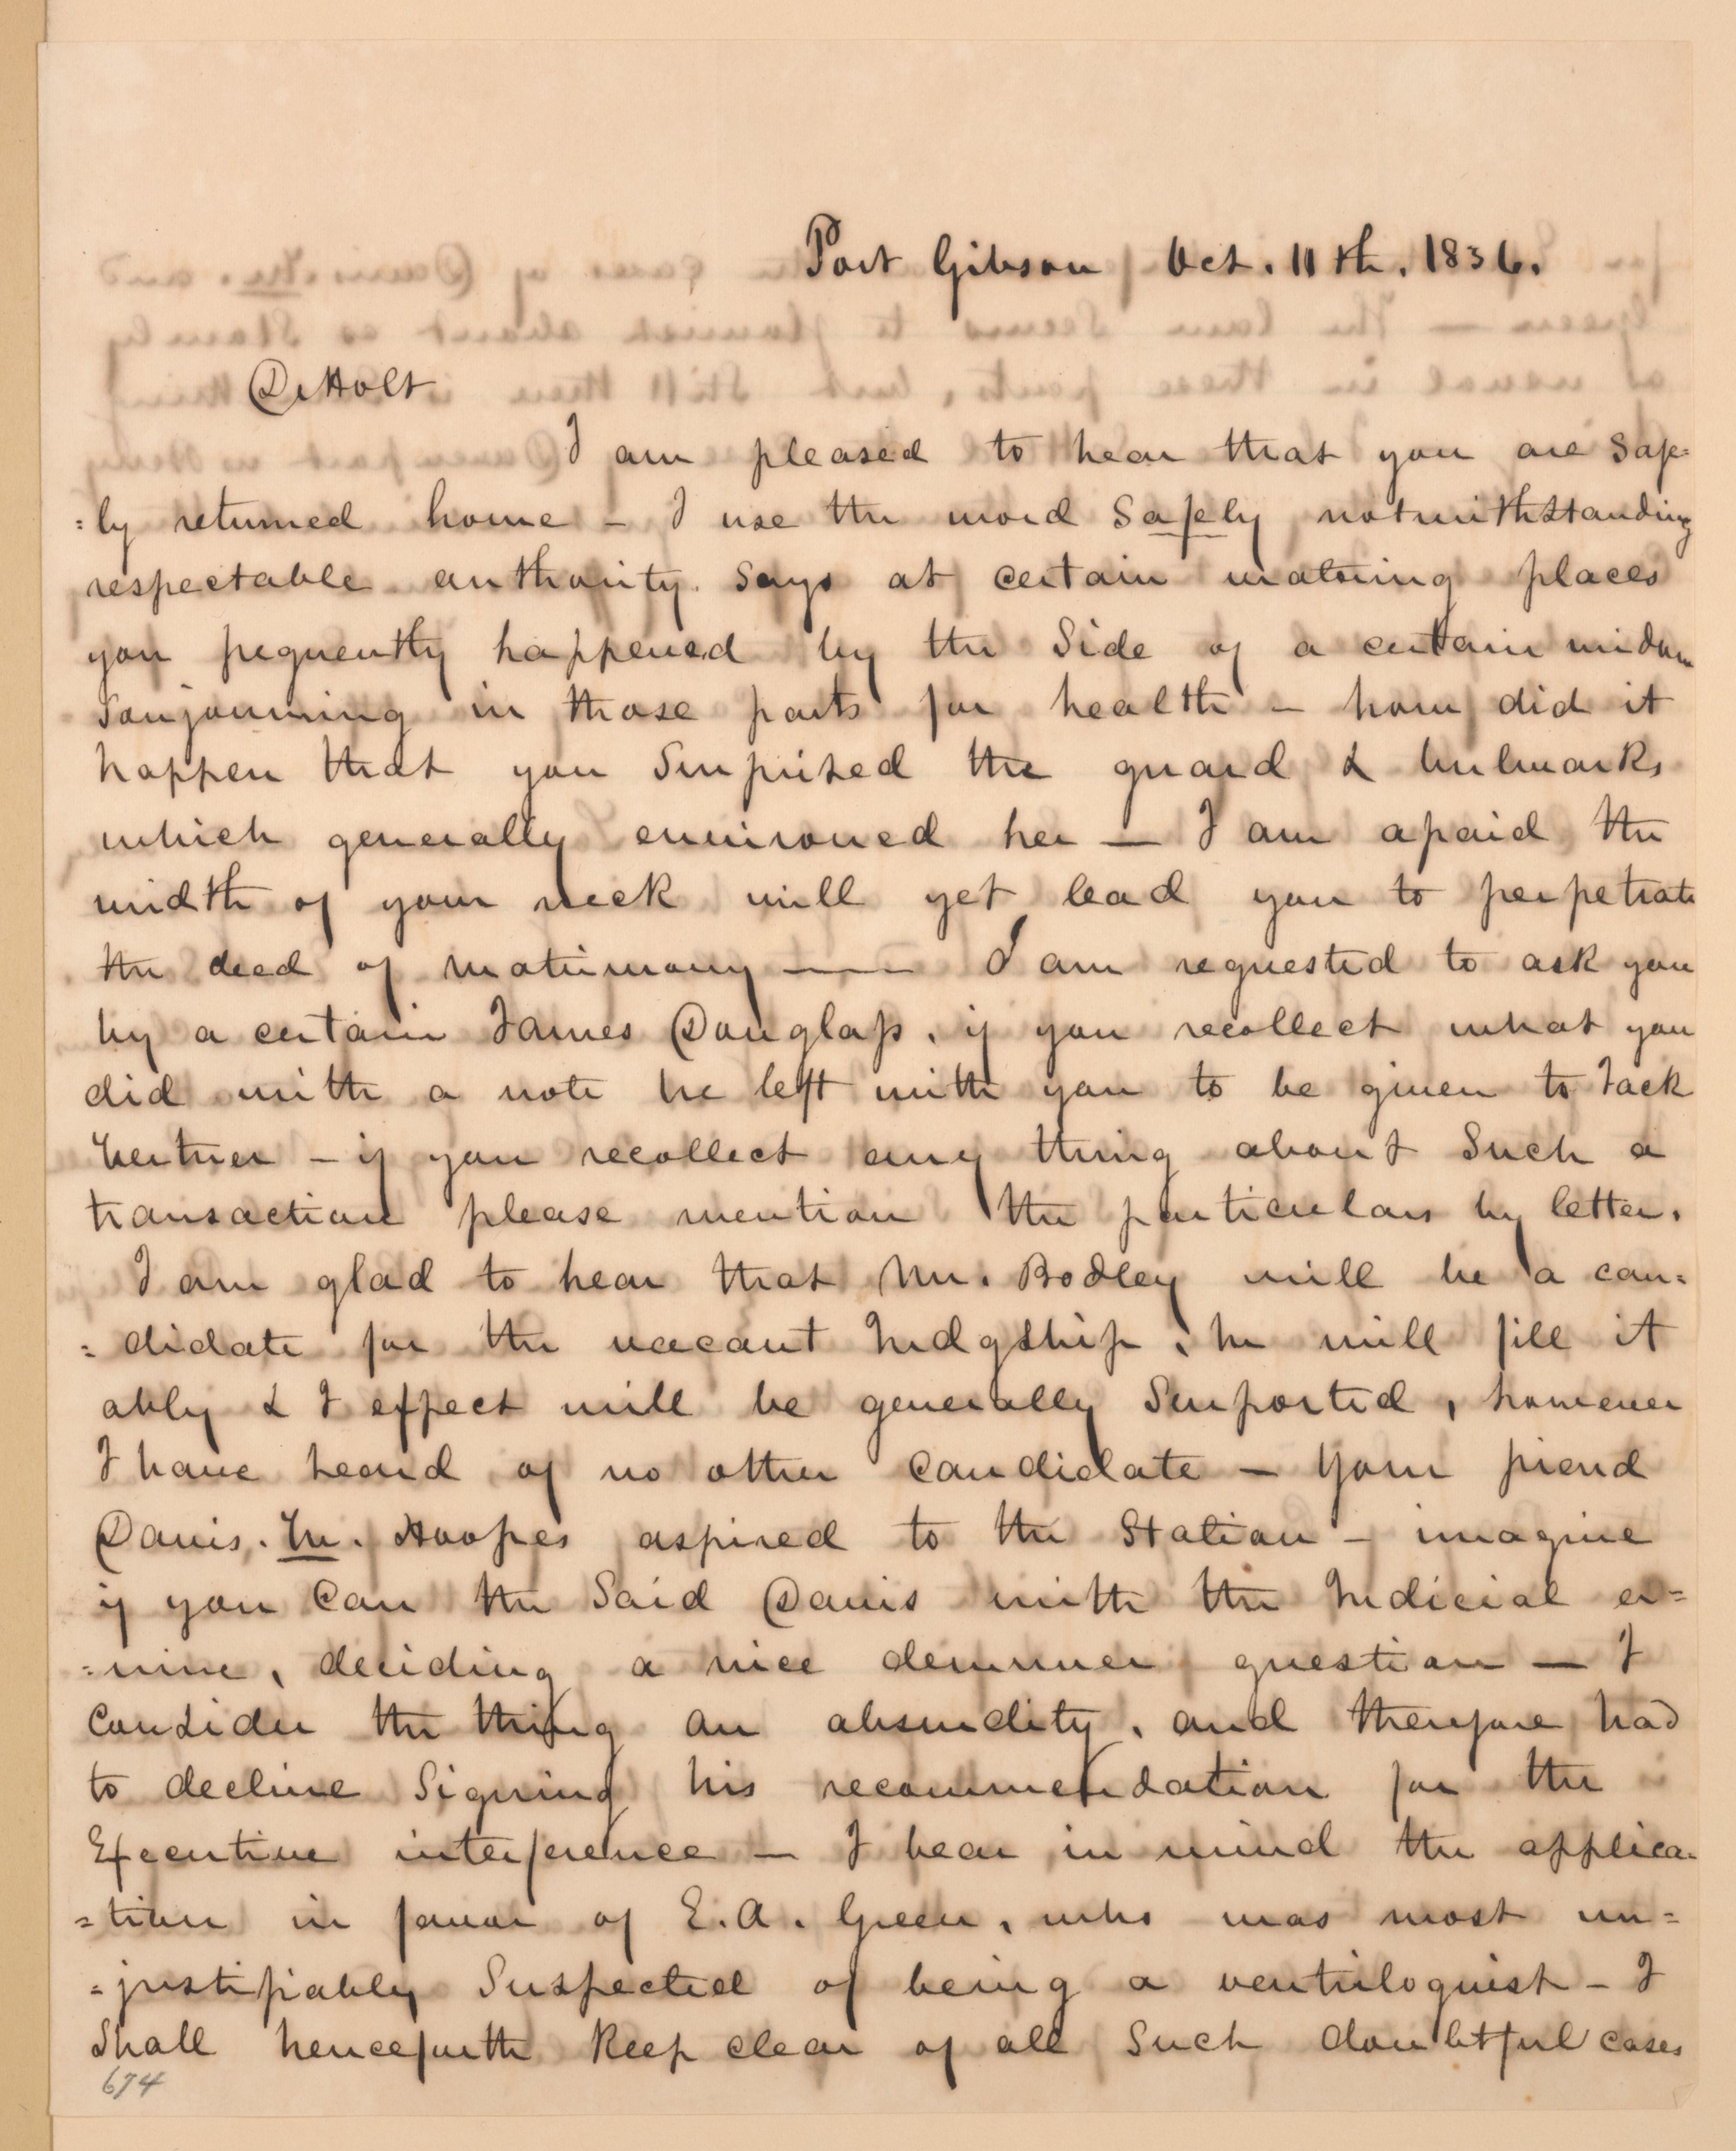 Port Gibson, Oct. 11th, 1836.
Dr Holt
I am pleased to hear that you are safe=
=ly returned home – I use the word safely notwithstanding
respectable authority says at certain watering places
you frequently happened by the side of a certain widow
soujourning in those parts for health – how did it
happen that you surprized the guard & bulwarks
which generally environed her — I am afraid the
width of your neck will yet lead you to perpetrate
the deed of matrimony —— I am requested to ask you
by a certain James Douglass, if you recollect what you
did with a note he left with you to be given to Jack
Vertner – if you recollect any thing about such a
transaction please mention the particulars by letter.
I am glad to hear that Mr. Bodley will be a can=
=didate for the vacant Judgship, he will fill it
ably & I expect will be generally supported, however
I have heard of no other candidate – Your friend
Davis. Hoopes aspired to the station – imagine
if you can the said Davis with the Judicial er=
=mine, deciding a nice demurrer question — I
consider the thing an absurdity, and therefore had
to decline signing his recommendation for the
Executive interference — I bear in mind the applica=
=tion in favor of E.A. Green, who was most un=
=justifiably suspected of being a ventriloquist – I
shall henceforth keep clear of all such doubtful cases
674